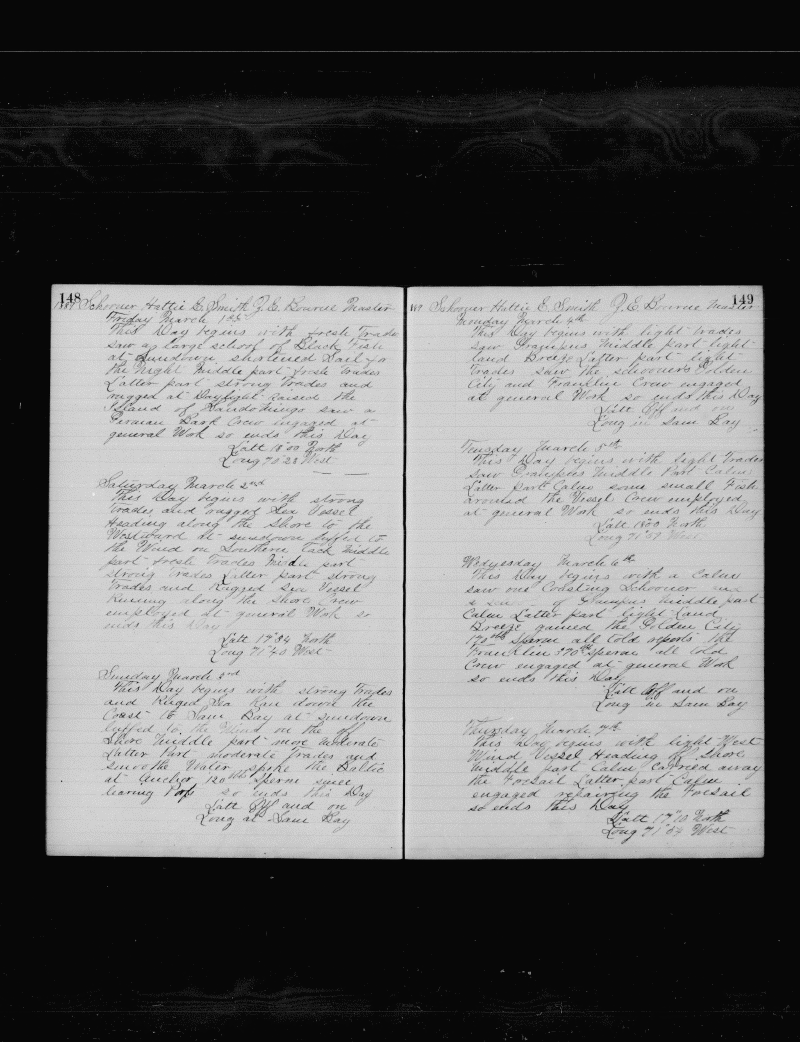 148
1889 Schooner Hattie E. Smith Z. E. Bourne Master
Friday March 1st
This Day begins with fresh Trades
saw a large school of Black Fish
at Sundown shortened Sail for
the Night Middle part fresh Trades
Latter part strong Trades and
rugged at Daylight raised the
Island of saw a
Peruvian Bark Crew engaged at
general Work so ends this Day
Latt 18"00 North
Long 70"28 West
Saturday March 2nd
This Day begins with strong
Trades and rugged Sea Vessel
Heading along the Shore to the
Westward at sundown luffed to
the Wind on Southern Tack Middle
part fresh Trades Middle part
strong Trades Latter part strong
Trades and Rugged Sea Vessel
Running along the Shore Crew
employed at general Work so
ends this Day
Latt 17"34 North
Long 71"40 West
Sunday March 3rd
This Day begins with strong Trades
and Ruged Sea Ran down the
Coast to Sam Bay at sundown
luffed to the Wind on the off
Shore Middle part more moderate
Latter Part moderate Trades and
smoothe Water spoke the Baltic
at Anchor 120 bbls Sperm since
leaving so ends this Day
Latt Off and on
Long at Sam Bay
149
1889 Schooner Hattie E. Smith Z. E. Bourne Master
Monday March 4th
This Day begins with light Trades
saw Grampuss Middle part light
land Breeze Latter part light
Trades saw the schooners Golden
City and Franklin Crew engaged
at general Work so ends this Day
Latt Off and on
Long in Sam Bay
Tuesday March 5th
This Day begins with light Trades
saw Grampuss Middle Part Calm
Latter part Calm some small Fish
around the Vessel Crew employed
at general Work so ends this Day
Latt 18"00 North
Long 71"07 West
Wednesday March 6th
This Day begins with a Calm
saw one Coasting Schooner and
Grampuss Middle part
Calm Latter part light Land
Breeze gamed the Golden City
170 bbls Sperm all told reports the
Franklin 370 bbls Sperm all told
Crew engaged at general Work
so ends this Day
Latt Off and on
Long in Sam Bay
Thursday March 7th
This Day begins with light West
Wind Vessel Heading off Shore
Middle part Calm Carried away
the Foresail Latter part Calm
engaged repairing the Foresail
so ends this Day
Latt 17"10 North
Long 71"34 West